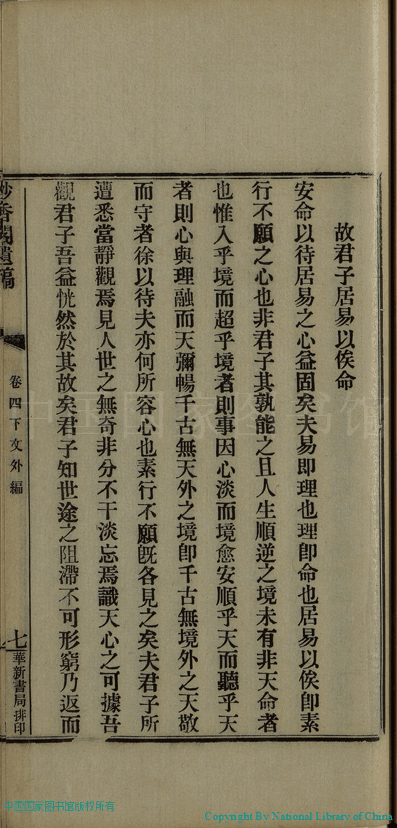 故君子居易以俟命
安命以待居易之心益固矣夫易即理也理卽命也居易以俟卽素
行不願之心也非君子其孰能之且人生順逆之境未有非天命者
也惟入乎境而超乎境者則事因心淡而境愈安順乎天而聽乎天
者則心與理融而天彌暢千古無天外之境卽千古無境外之天敬
而守者徐以待夫亦何所容心也素行不願旣各見之矣夫君子所
遭悉當靜觀焉見人世之無奇非分不干淡忘焉識天心之可據吾
觀君子吾益恍然於其故矣君子知世途之阻滯不可形窮乃返而
妙香閣遺稿
卷四下文外編
七
華新書局排印
中国国家图书馆
中国国家图书馆版权所有
Copyright By National Library of China